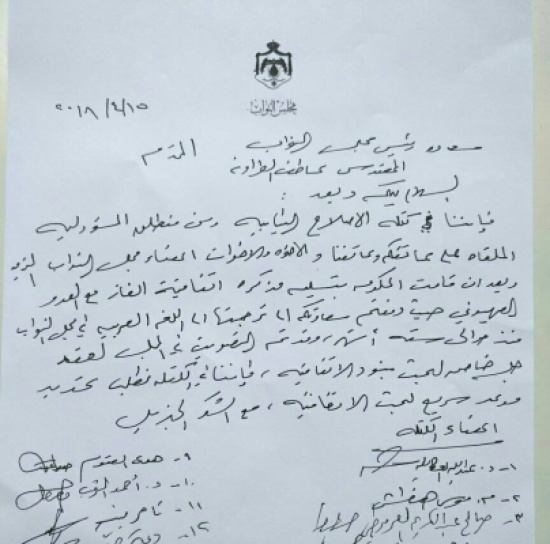 مجلس النواب
٢٠١٨/٤/١٥
سعادة رئيس مجلس النواب المحترم
المهندس عاطف الطراونة
السلام عليكم وبعد:
فإننا في كتلة الاصلاح النيابية ومن منطلق المسؤولية
الملقاه على عاتقكم وعاتقنا والاخوه والاخوات اعضاء مجلس النواب
وبعد ان قامت الحكومه بتسليم مذكره اتفاقية الغاز مع العدو
الصهيوني حيث دفعتم سعادتكم الى ترجمتها الى اللغه العربيه في مجلس النواب
منذ حوالي سته أشهر وقد تم التصويت في المجلس لعقد
جلسه خاصه لبحث بنود الاتفاقيه، فإننا في الكتله نطلب تحديد
موعد سريع لبحث الاتفاقيه، مع الشكر الجزيل
اعضاء الكتله
١- د. عبدالله العكايله
٢- م. موسى هنطش
٣- صالح عبدالكريم العرموطي
٩- هدى العتوم
١٠- د. أحمد الرقب
١١- تامر بينو
١٢-